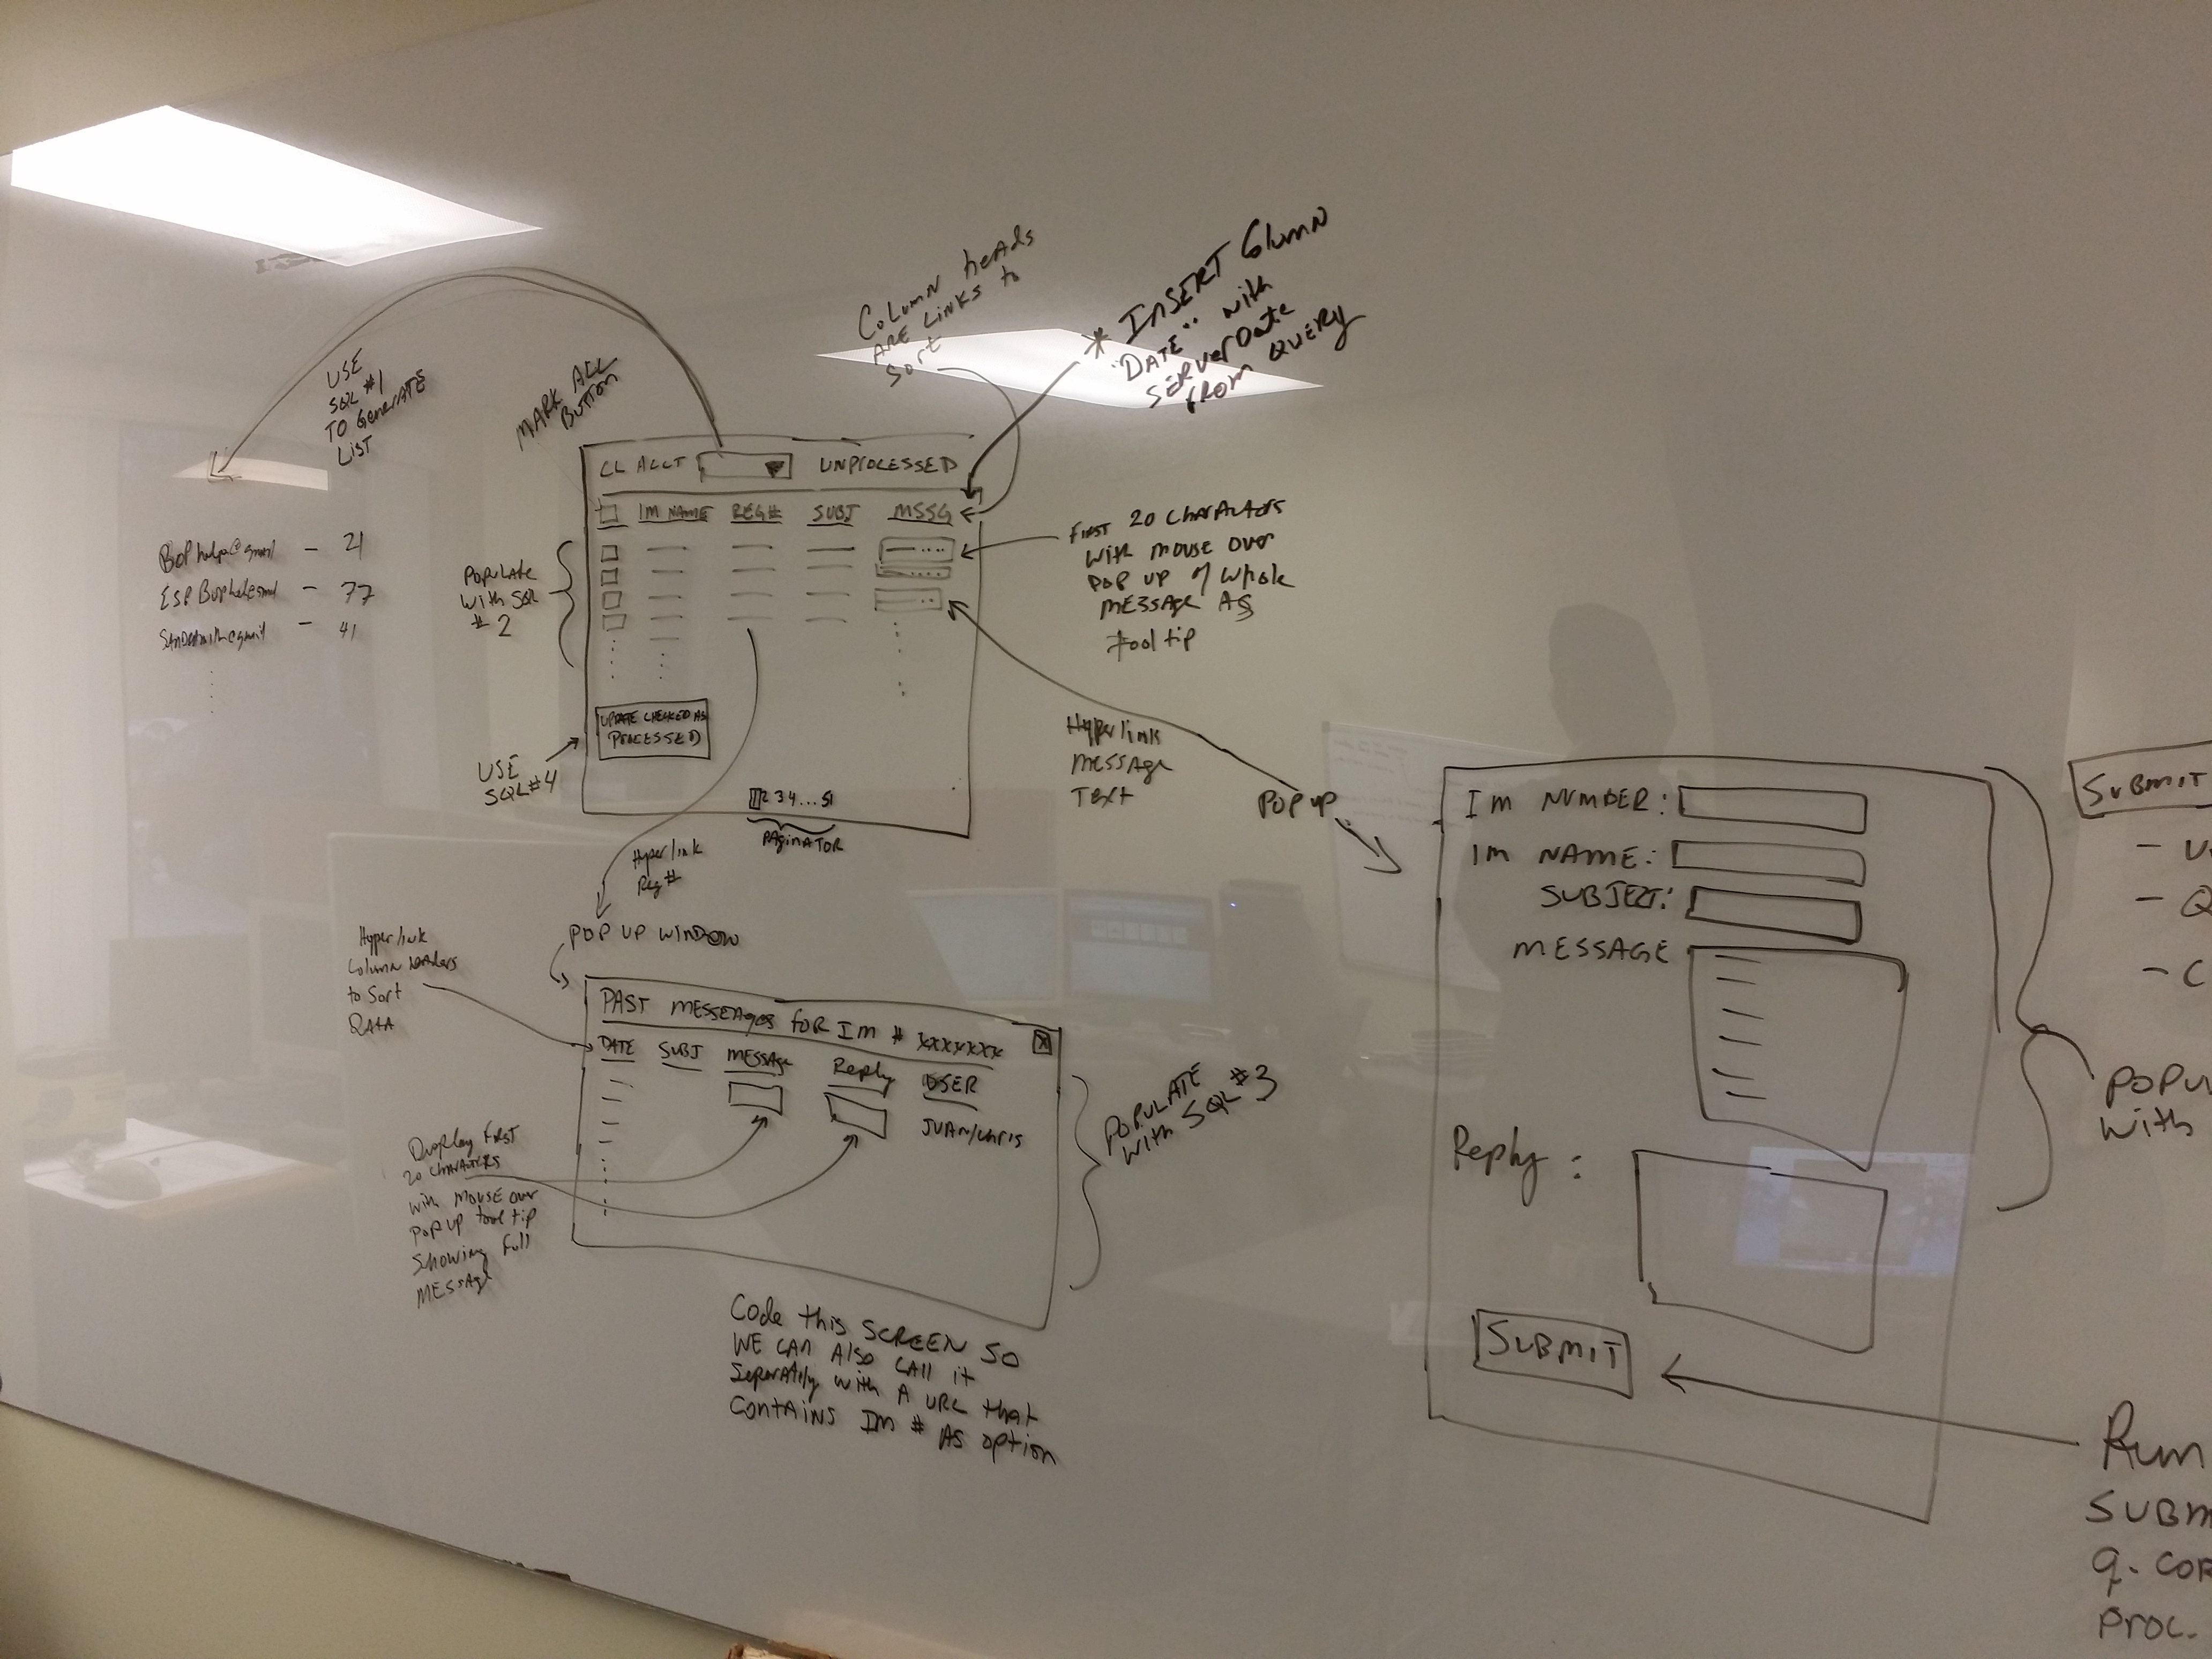 Column heads
ARE LINKS to
Sort
* INSERT Column
"DATE" with
SERVERDate
FROM QUERY
USE
SQL #1
TO GenerATE
LIST
MARK ALL
BUTTON
CL ACCT
UNPROCESSED
IM NAME REG# SUBJ MSSG
- 21
- 77
- 41
POPULATE
With SQL
#2
FIRST 20 CHARACTERS
With mouse over
POP UP of Whole
MESSAge AS
tool tip
UPDATE CHECKED AS
PROCESSED
USE
SQL#4
1 2 3 4 ... 51
PAgiNATOR
Hyperlink
MESSAge
TEXT
POP UP
Hyperlink
Reg #
POP UP WINDOW
Hyperlink
Column headers
to Sort
DATA
PAST MESSEAges FOR Im # XXXXXXX
X
DATE SUBJ MESSAge Reply USER
JUAN/Chris
POPULATE
With SQL #3
Display First
20 CHARACTERS
with mouse over
POP UP tool tip
Showing Full
MESSAge
Code this SCREEN SO
WE CAN Also CAll it
Seperately with A URL that
CONTAINS Im # AS option
Im NUMBER:
IM NAME:
SUBJECT:
MESSAGE
Reply:
SUBMIT
SUBMIT
- U
- Q
- C
POPU
With
Run
SUBM
q. COR
PROC.